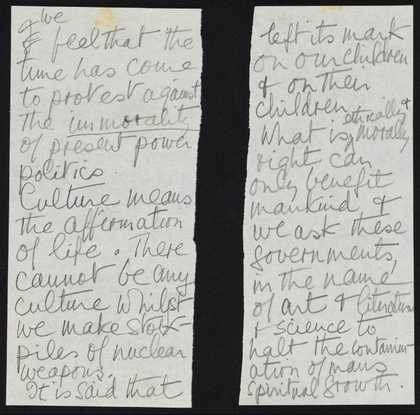 & we
feel that the
time has come
to protest against
the immorality
of present power
politics
Culture means
the affirmation
of life. There
cannot be any
culture whilst
we make stock-
piles of nuclear
weapons.
It is said that
left its mark
on our children
& on their
children.
What is ethically &
morally
right can
only benefit
mankind &
we ask these
governments,
in the name
of art & literature
& science to
halt the contamin-
ation of mans
spiritual growth.